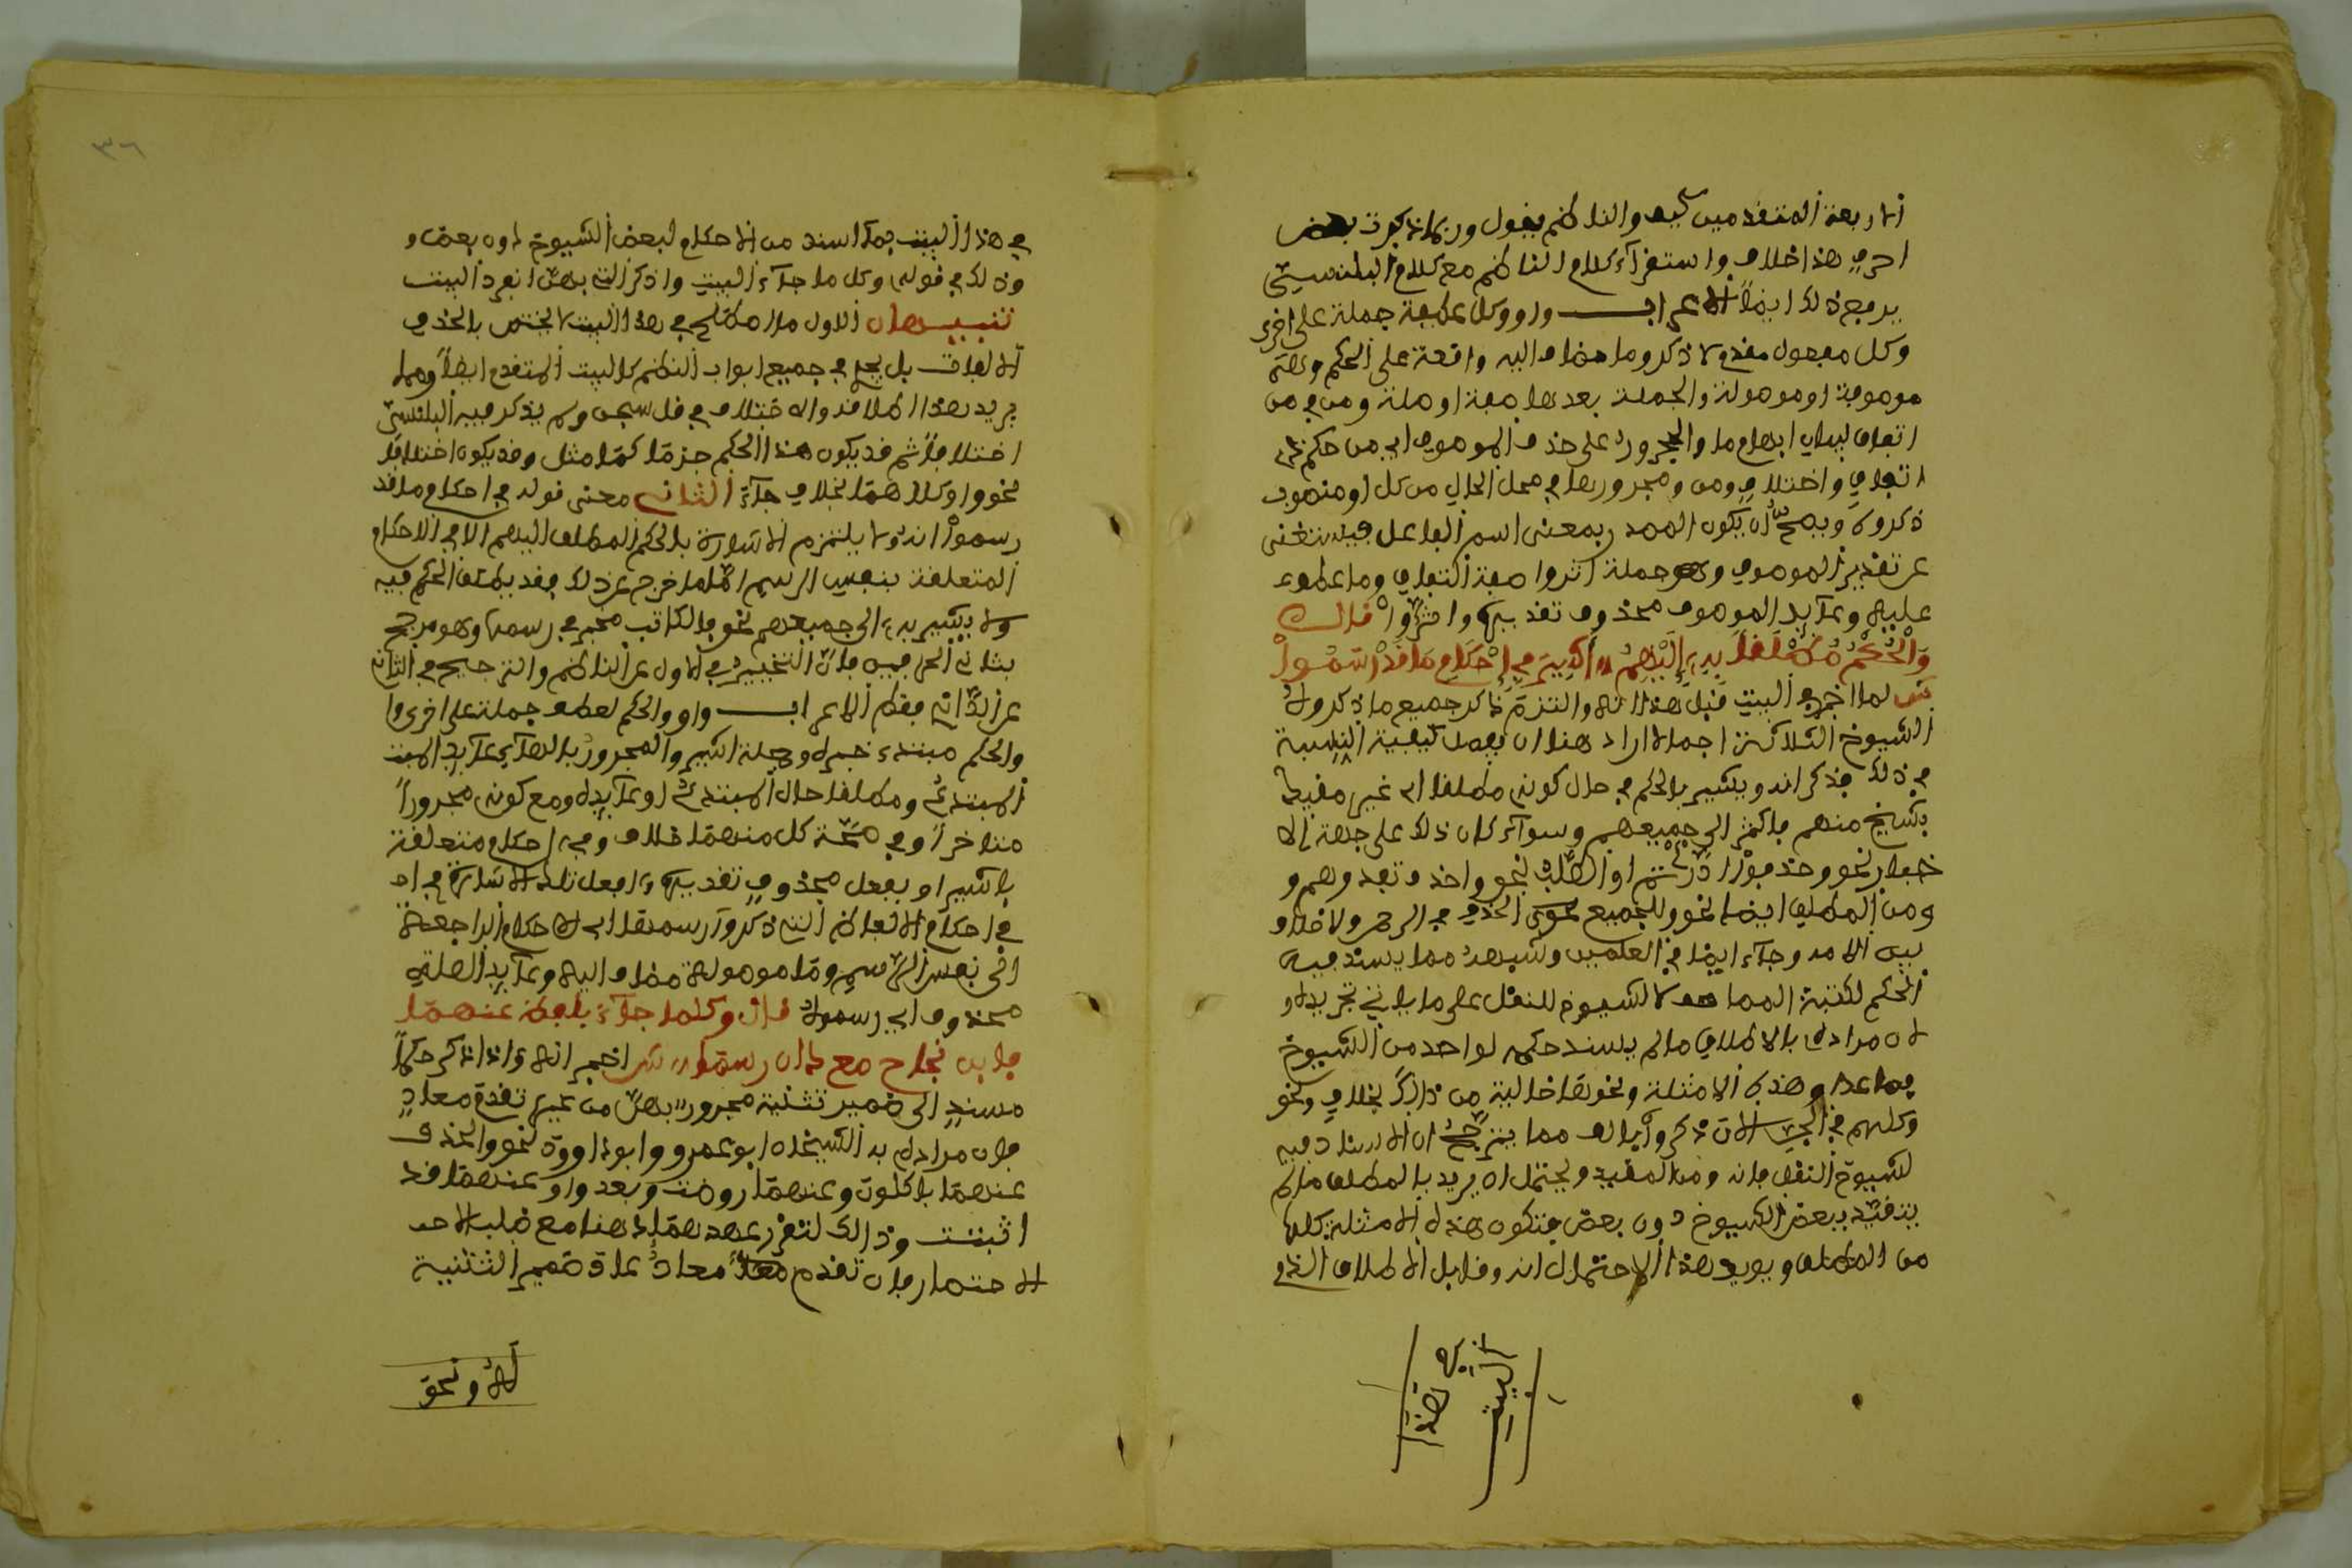 الاربعة المتقدمين كيف والناظم يقول وربما ذكرت بعض
احرف هذا خلاف واستقرآء كلام الناظم مع كلام البلنسي
يدفع ذلك ايضاً الاعراب واو وكل عاطفة جملة على اخرى
وكل مفعول مقدم لاذكر وما مضاف اليه واقعة على الحكم وهي
موصوفة او موصولة والجملة بعدها صفة او صلة ومن في من
اتفاق لبيان ابهام ما والمجرور على حذف الموصوف اي من حكم ذي
اتفاق واختلاف ومن ومجرورها في محل الحال من كل او منصوب
ذكروه ويصح ان يكون المصدر بمعنى اسم الفاعل فيستغنى
عن تقدير الموصوف وجملة اثروا صفة اتفاق وما عطف
عليه وعآيد الموصوف محذوف تقديره واثروا قال
وَالْحُكْمُ مُطْلَقاً بِهِ إِلَيْهِمُ أُشِيرُ فِي أَحْكَامِ مَا قَدْ رَسَمُواْ
ش لما اخبر في البيت قبل هذا انه التزم ذكر جميع ما ذكروه
الشيوخ الثلاثة اجمالا اراد هنا ان يفصل كيفية النسبة
في ذلك فذكر انه يشير بالحكم في حال كونه مطلقا اي غير مقيد
بشيخ منهم فاكثر الى جميعهم وسوآء كان ذلك على جهة الا
خبار نحو وحذفوا ادّرأتم او الطلب نحو واحذف تفدوهم و
ومن المطلق ايضا نحو وللجميع الحذف في الرحمن ولا خلاف
بين الامة وجآء ايضا في العلمين وشبهه مما يسند فيه
الحكم لكتبة المصاحف لا لشيوخ النقل على ما ياتي تحريره و
لان مراده بالاطلاق ما لم يسند حكمه لواحد من الشيوخ
فصاعدا وهذه الامثلة ونحوها خالية من ذالك بخلاف نحو
لشيوخ النقل فانه من المقيد ويحتمل ان يريد بالمطلق ما لم
يتقيد ببعض الشيوخ دون بعض فتكون هذه الامثلة كلها
من المطلق ويويد هذا الاحتمال انه قابل الاطلاق الذي
في هذا
البيت
في هذا البيت بما اسند من الاحكام لبعض الشيوخ دون بعض و
وذلك في قوله وكل ما جآء البيت واذكر التي بهن انفرد البيت
تنبيهان الاول ما اصطلح في هذا البيت لا يختص بالحذف
الالفات بل يعم في جميع ابواب النظم كالبيت المتقدم ايضاً ومما
يريد بهذا اطلاقه والاختلاف في قل سبحن ولم يذكر فيه البلنسي
اختلافاً ثم قد يكون هذا الحكم جزما كما مثل وقد يكون اختلافا
نحو واو كلاهما بخلاف جآء الثاني معنى قوله في احكام ما قد
رسموا انه لا يلتزم الاشارة بالحكم المطلق اليهم الا في الاحكام
المتعلقة بنفس الرسم اما ما خرج عن ذلك فقد يطلق الحكم فيه
ولا يشير به الى جميعهم نحو فالكاتب مخير في رسمها وهو مرجح
بثاني الحرفين فان التخيير في الاول عن الناظم والترجيح في الثاني
عن الداني فقط الاعراب واو والحكم لعطف جملة على اخرى و
والحكم مبتدء خبره جملة اشير والمجرور بالبآء عآيد المبتد
المبتدئ ومطلقا حال المبتدئ او عآيده ومع كونه مجروراً
متاخراً وفي صحة كل منهما خلاف وفي احكام متعلقة
باشير او بفعل محذوف تقديره افعل تلك الاشارة في ا
في احكام الالفاظ التي ذكروا رسمها اي الاحكام الراجعة
الى نفس الرسم وما موصولة مضاف اليه وعآيد الصلة
محذوف اي رسموه قال وكلما جآء بلفظ عنهما
فابن نجاح مع دان رسما ش اخبر انه اذا ذكر حكماً
مسند الى ضمير تثنية مجرور بعن من غير تقدم معاد
فان مراده به الشيخان ابو عمرو وابو داوود نحو والحذف
عنهما باكلون وعنهما روضت وبعد واو عنهما قد
اثبتت وذالك لتقرر عهدهما هنا مع غلبة الا
الاختصار فان تقدم معاد عاد ضمير التثنية
له ونحو
٣٦